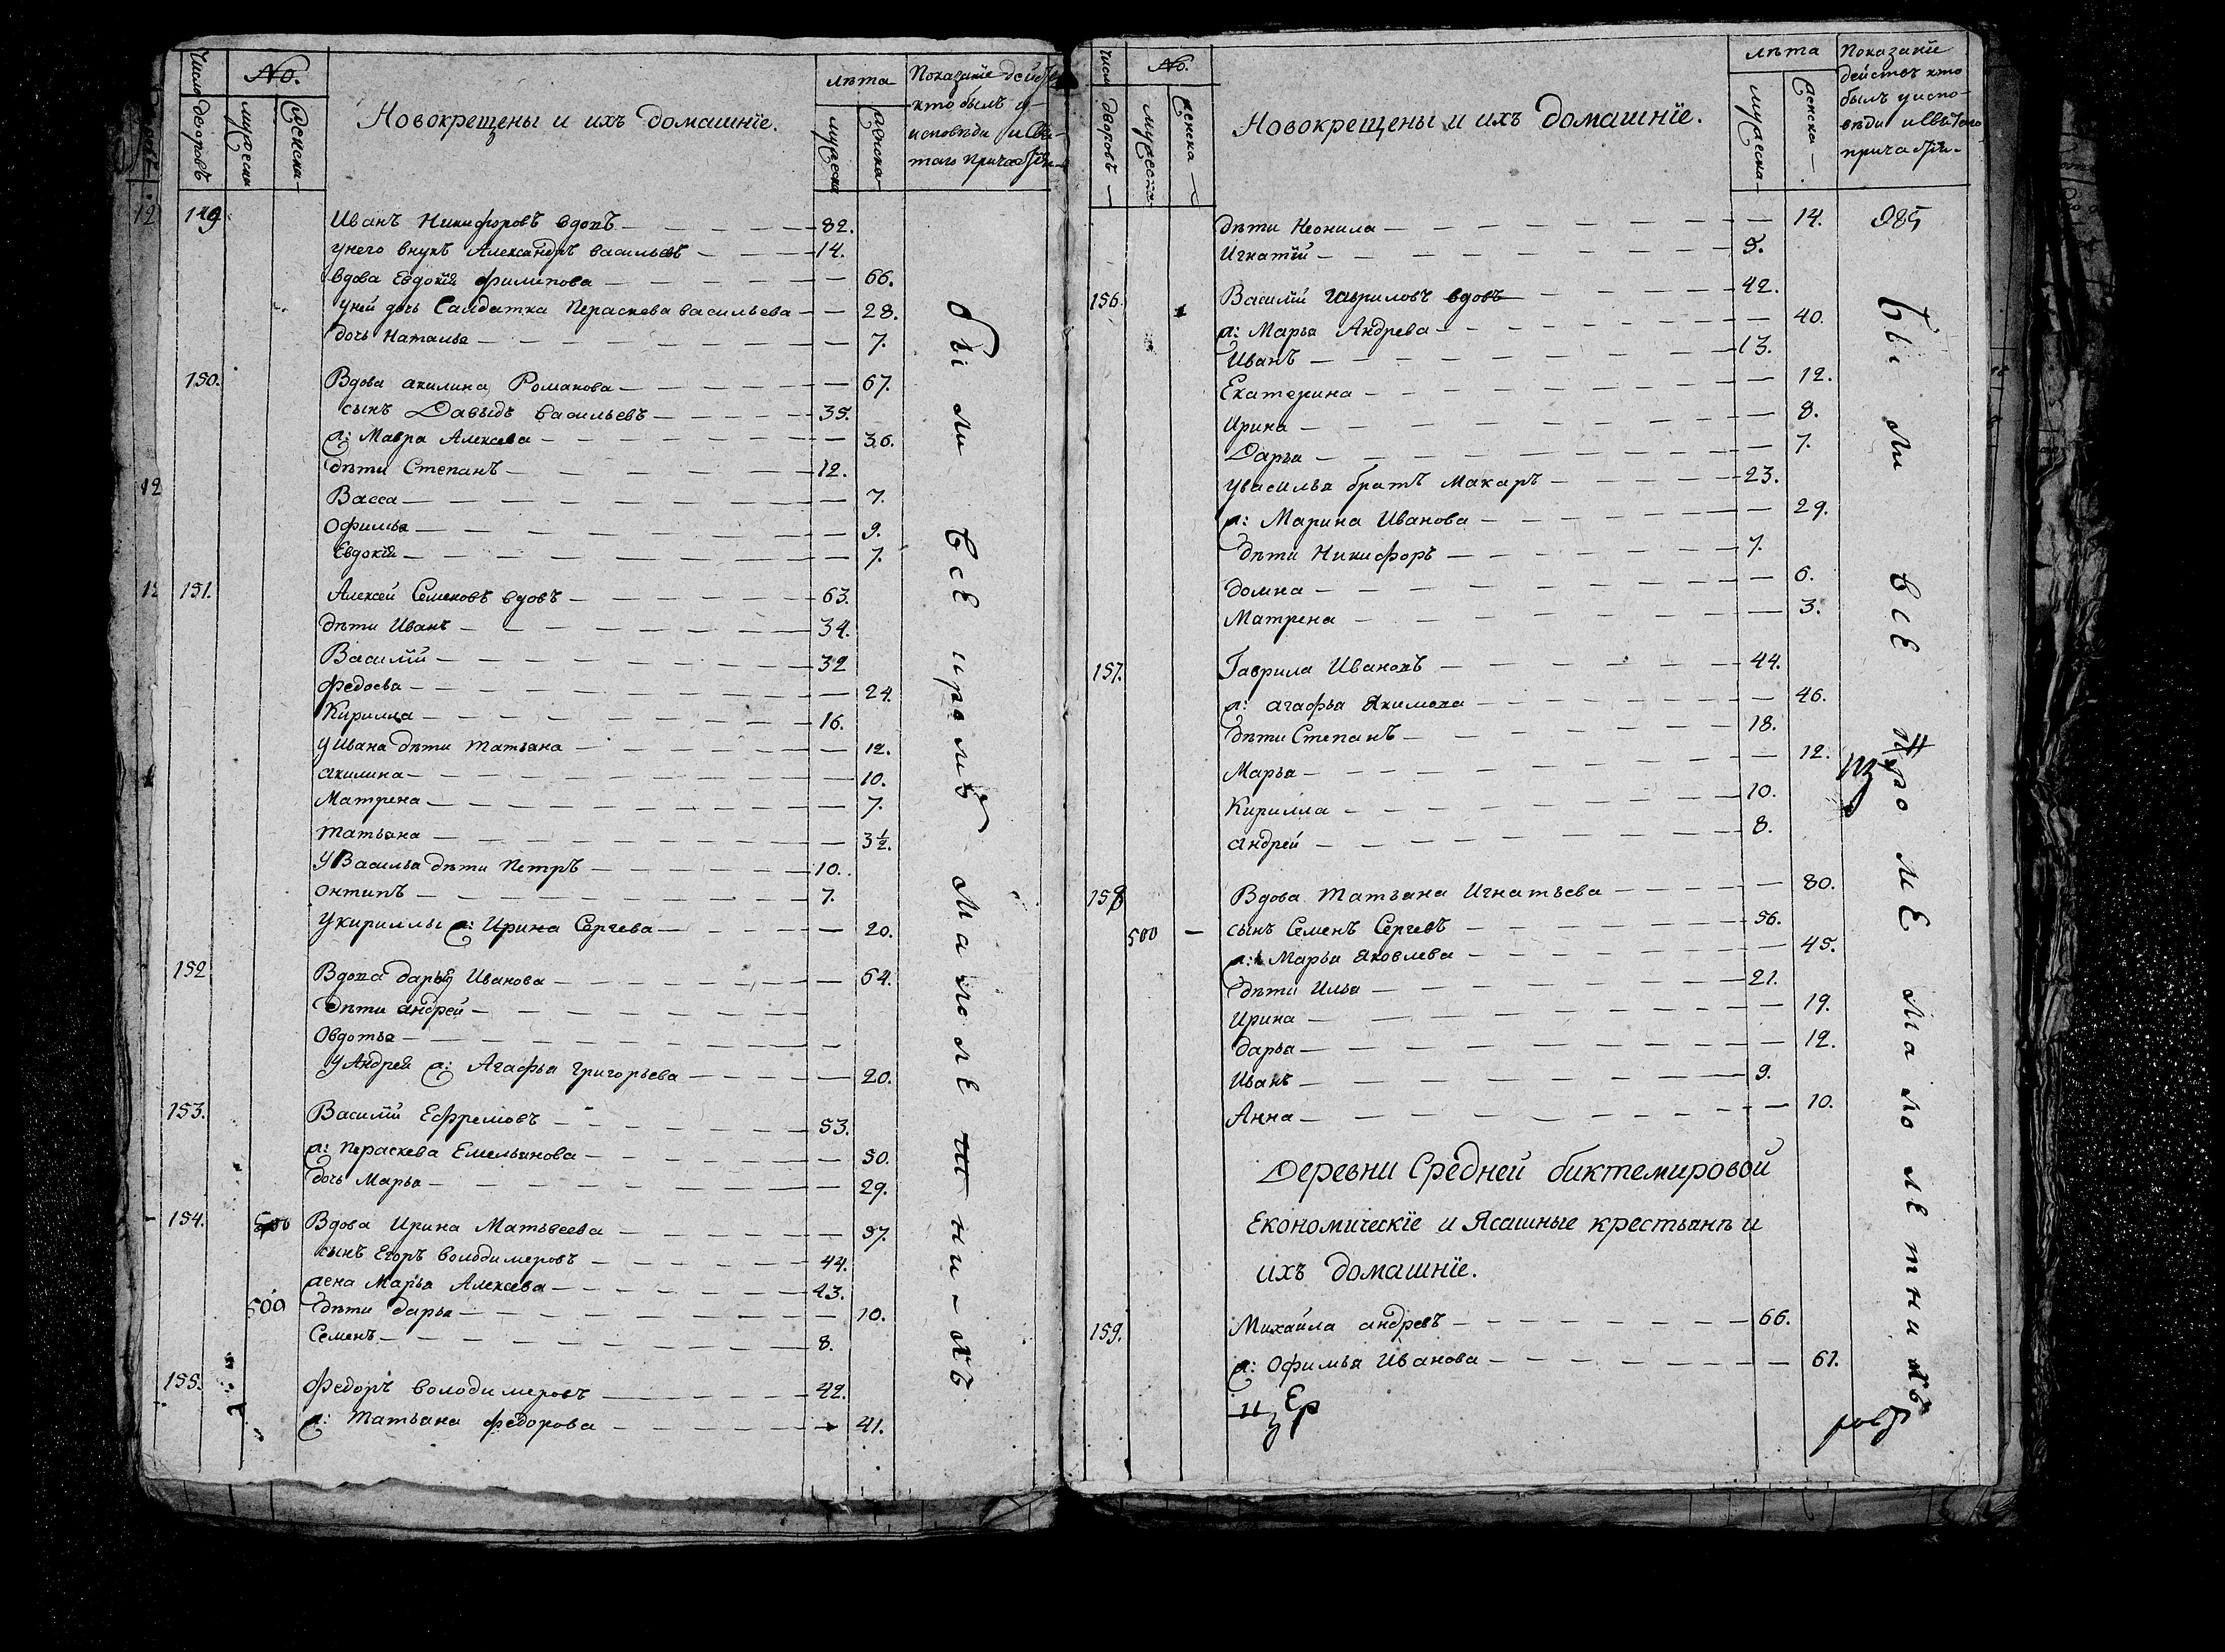 Число дворовъ
No.
мужеска
женска
Новокрещены и ихъ домашнїе.
лѣта
мужеска
женска
Показанїе дейст
кто былъ у
исповѣди и Свя-
таго Причастїя
149 Иванъ Никифоровъ вдовъ 82.
у него внукъ Александръ васильевъ 14.
вдова Евдокїя филипова 66.
у ней дочь Салдатка Пераскева васильева 28.
дочь Наталья 7.
150. Вдова акилина Романова 67.
сынъ Давыдъ васильевъ 35.
ж: Мавра Алексеева 36.
дѣти Степанъ 12.
Васса 7.
Офимья 9.
Евдокїя 7.
151. Алексей Семеновъ вдовъ 63.
дѣти Иванъ 34.
Василїй 32
федосья 24.
Кирилла 16.
у Ивана дѣти татьяна 12.
акилина 10.
Матрена 7.
татьяна 3½.
у Василья дѣти Петръ 10.
онтипъ 7.
у кириллы ж: Ирина Сергева 20.
152 Вдова дарья Иванова 64.
дѣти андрей
Овдотья
у Андрея ж: Агафья григорьева 20.
153. Василїй Ефремовъ 53.
ж: Пераскева Емельянова 50.
дочь Марья 29.
154. 500 Вдова Ирина Матвеева 97.
сынъ Егоръ володимеровъ 44.
жена Марья Алексева 43.
500 дѣти дарья 10.
Семенъ 8.
155. Федоръ володимеровъ 42.
ж: татьяна федорова 41.
были все кроме малолетнихъ
Число дворовъ
No.
мужеска
женска
Новокрещены и ихъ домашнїе.
лѣта
мужеска
женска
Показанїе
действ кто
былъ у испо-
вѣди и Святаго
причастїя
985
дѣти Неонила 14.
Игнатїй
156. Василїй Гавриловъ вдовъ 42.
ж: Марья Андрева 40.
Иванъ 13.
Екатерина 12.
Ирина 8.
Дарья 7.
у василья братъ Макаръ 23.
ж: Марина Иванова 29.
дѣти Никифоръ 7.
домна 6.
Матрена 3.
157. Гаврила Ивановъ 44.
ж: агафья Якимова 46.
дѣти Степанъ 18.
Марья 12.
Кирилла 10.
андрей 8.
158 Вдова Татьяна Игнатьева 80.
500 сынъ Семенъ Сергевъ 56.
ж: Марья Яковлева 45.
дѣти Илья 21.
Ирина 19.
дарья 12.
Иванъ 9.
Анна 10.
Деревни Средней биктемировой
Економическїе и Ясашные крестьянѣ и
ихъ домашнїе.
159. Михайла андревъ 66.
ж: Офимья Иванова 61.
были все кроме малолетнихъ